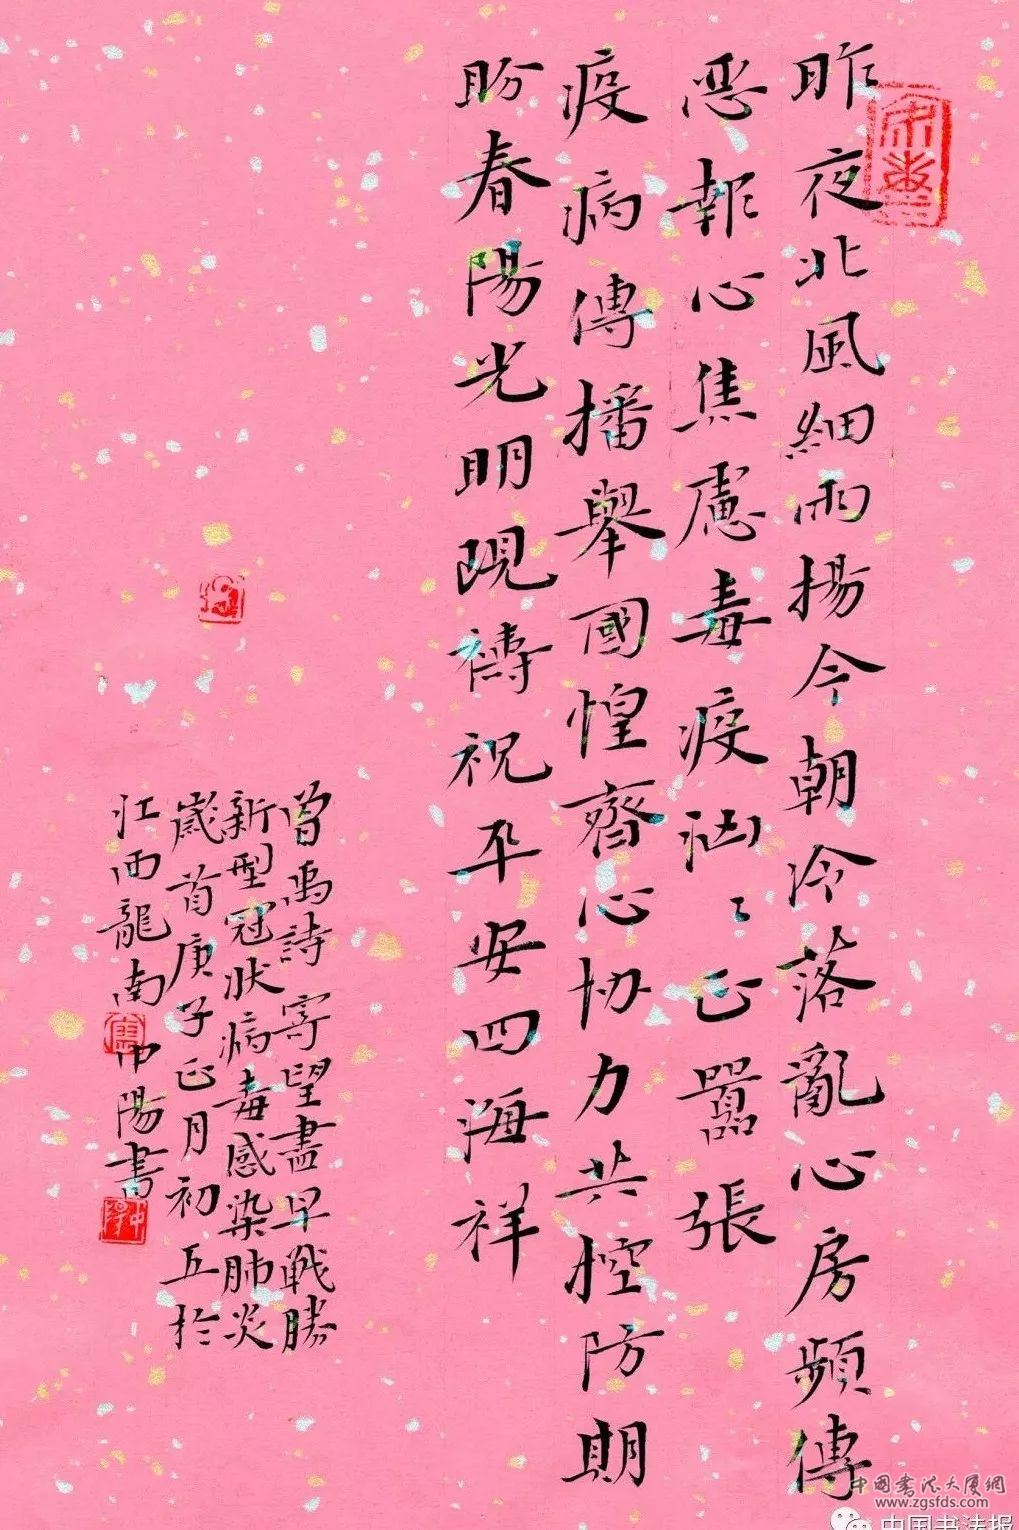 昨夜北風細雨揚今朝冷落亂心房頻傳
惡報心焦慮毒疫汹〻正囂張
疫病傳播舉國惶齊心協力共控防期
盼春陽光明現禱祝平安四海祥
曾禹詩寄望盡早戰勝
新型冠狀病毒感染肺炎
歲首庚子正月初五於
江西龍南中陽書
中国书法大厦网
www.zgsfds.com
中国书法报